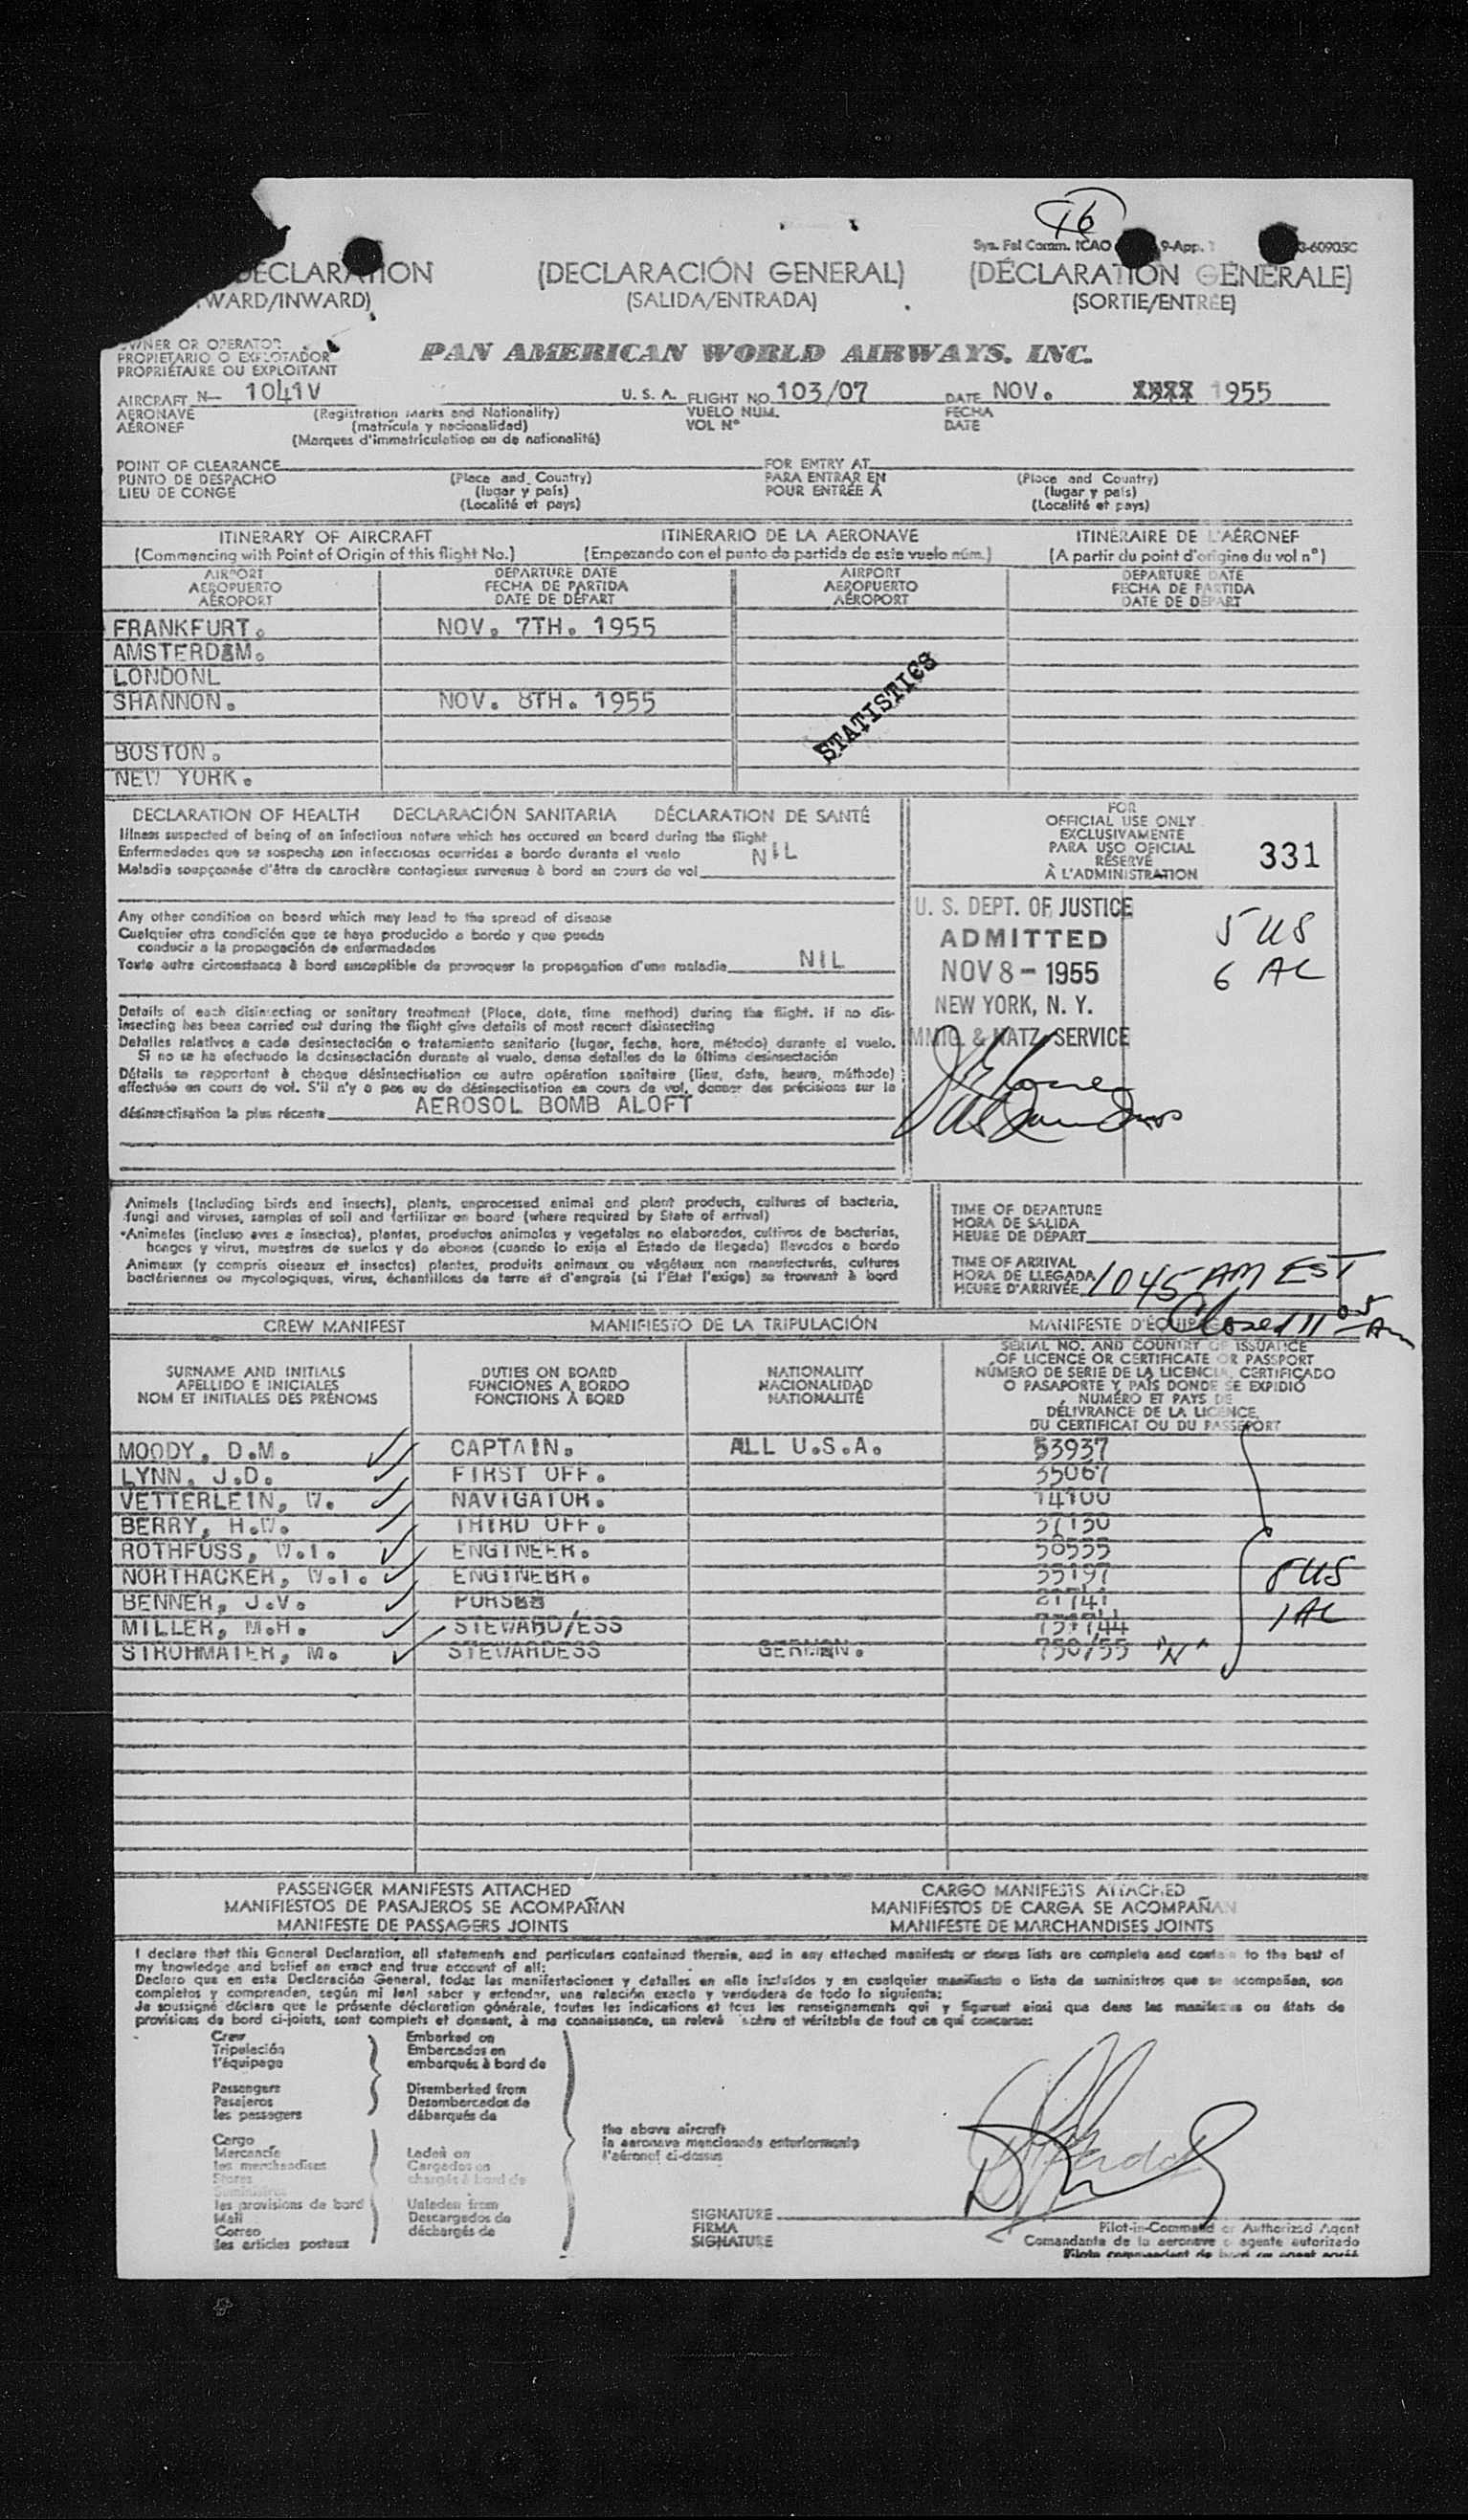 16
Sys. Fal Comm. ICAO 9-App. 3-60905C
DECLARATION (DECLARACIÓN GENERAL) (DÉCLARATION GÉNÉRALE)
WARD/INWARD) (SALIDA/ENTRADA) (SORTIE/ENTRÉE)
OWNER OR OPERATOR
PROPIETARIO O EXPLOTADOR PAN AMERICAN WORLD AIRWAYS, INC.
PROPRIÉTAIRE OU EXPLOITANT
AIRCRAFT N- 1041V U. S. A. FLIGHT NO. 103/07 DATE NOV. 1955
AERONAVE (Registration Marks and Nationality) VUELO NUM. FECHA
AÉRONEF (matrícula y nacionalidad) VOL Nº DATE
(Marques d'immatriculation ou de nationalité)
POINT OF CLEARANCE FOR ENTRY AT
PUNTO DE DESPACHO (Place and Country) PARA ENTRAR EN (Place and Country)
LIEU DE CONGÉ (lugar y país) POUR ENTRÉE A (lugar y país)
(Localité et pays) (Localité et pays)
ITINERARY OF AIRCRAFT ITINERARIO DE LA AERONAVE ITINÉRAIRE DE L'AÉRONEF
(Commencing with Point of Origin of this flight No.) (Empezando con el punto de partida de este vuelo núm.) (A partir du point d'origine du vol nº)
AIRPORT DEPARTURE DATE AIRPORT DEPARTURE DATE
AEROPUERTO FECHA DE PARTIDA AEROPUERTO FECHA DE PARTIDA
AÉROPORT DATE DE DÉPART AÉROPORT DATE DE DÉPART
FRANKFURT. NOV. 7TH. 1955
AMSTERDAM.
LONDONL
SHANNON. NOV. 8TH. 1955
STATISTICS
BOSTON.
NEW YORK.
DECLARATION OF HEALTH DECLARACIÓN SANITARIA DÉCLARATION DE SANTÉ
Illness suspected of being of an infectious nature which has occured on board during the flight
Enfermedades que se sospecha son infecciosas ocurridas a bordo durante el vuelo NIL
Maladie soupçonnée d'être de caractère contagieux survenue à bord en cours de vol
FOR
OFFICIAL USE ONLY
EXCLUSIVAMENTE
PARA USO OFICIAL 331
RÉSERVÉ
À L'ADMINISTRATION
Any other condition on board which may lead to the spread of disease
Cualquier otra condición que se haya producido a bordo y que pueda
conducir a la propagación de enfermedades
Toute autre circonstance à bord susceptible de provoquer la propagation d'une maladie NIL
U. S. DEPT. OF JUSTICE
ADMITTED 5 US
NOV 8 - 1955 6 AL
NEW YORK, N. Y.
IMMIG. & NATZ. SERVICE
Details of each disinsecting or sanitary treatment (Place, date, time method) during the flight. If no dis-
insecting has been carried out during the flight give details of most recent disinsecting
Detalles relativos a cada desinsectación o tratamiento sanitario (lugar, fecha, hora, método) durante el vuelo.
Si no se ha efectuado la desinsectación durante el vuelo, dense detalles de la última desinsectación
Détails se rapportant à chaque désinsectisation ou autre opération sanitaire (lieu, date, heure, méthode)
effectuée en cours de vol. S'il n'y a pas eu de désinsectisation en cours de vol, donner des précisions sur la
désinsectisation la plus récente AEROSOL BOMB ALOFT
Animals (Including birds and insects), plants, unprocessed animal and plant products, cultures of bacteria,
fungi and viruses, samples of soil and fertilizer on board (where required by State of arrival)
Animales (incluso aves e insectos), plantas, productos animales y vegetales no elaborados, cultivos de bacterias,
hongos y virus, muestras de suelos y de abonos (cuando lo exija el Estado de llegada) llevados a bordo
Animaux (y compris oiseaux et insectes) plantes, produits animaux ou végétaux non manufacturés, cultures
bactériennes ou mycologiques, virus, échantillons de terre et d'engrais (si l'État l'exige) se trouvant à bord
TIME OF DEPARTURE
HORA DE SALIDA
HEURE DE DÉPART
TIME OF ARRIVAL
HORA DE LLEGADA 1045 AM EST
HEURE D'ARRIVÉE
Closed 11 05 Am
CREW MANIFEST MANIFIESTO DE LA TRIPULACIÓN MANIFESTE D'ÉQUIPAGE
SURNAME AND INITIALS DUTIES ON BOARD NATIONALITY
APELLIDO E INICIALES FUNCIONES A BORDO NACIONALIDAD
NOM ET INITIALES DES PRÉNOMS FONCTIONS À BORD NATIONALITÉ
SERIAL NO. AND COUNTRY OF ISSUANCE
OF LICENCE OR CERTIFICATE OR PASSPORT
NÚMERO DE SERIE DE LA LICENCIA, CERTIFICADO
O PASAPORTE Y PAÍS DONDE SE EXPIDIÓ
NUMÉRO ET PAYS DE
DÉLIVRANCE DE LA LICENCE,
DU CERTIFICAT OU DU PASSEPORT
MOODY, D.M. CAPTAIN. ALL U.S.A. 53937
LYNN, J.D. FIRST OFF. 35067
VETTERLEIN, W. NAVIGATOR. 14100
BERRY, H.W. THIRD OFF. 57130
ROTHFUSS, W.I. ENGINEER.
NORTHACKER, W.I. ENGINEER. 35197 8 US
BENNER, J.V. PURSER 21741 1 AL
MILLER, M.H. STEWARD/ESS
STROHMAIER, M. STEWARDESS GERMAN. 750/55 "N"
PASSENGER MANIFESTS ATTACHED CARGO MANIFESTS ATTACHED
MANIFIESTOS DE PASAJEROS SE ACOMPAÑAN MANIFIESTOS DE CARGA SE ACOMPAÑAN
MANIFESTE DE PASSAGERS JOINTS MANIFESTE DE MARCHANDISES JOINTS
I declare that this General Declaration, all statements and particulars contained therein, and in any attached manifests or stores lists are complete and contain to the best of
my knowledge and belief an exact and true account of all:
Declaro que en esta Declaración General, todas las manifestaciones y detalles en ella incluídos y en cualquier manifiesto o lista de suministros que se acompañen, son
completos y comprenden, según mi leal saber y entender, una relación exacta y verdadera de todo lo siguiente:
Je soussigné déclare que la présente déclaration générale, toutes les indications et tous les renseignements qui y figurent ainsi que dans les manifestes ou états de
provisions de bord ci-joints, sont complets et donnent, à ma connaissance, un relevé sincère et véritable de tout ce qui concerne:
Crew Embarked on
Tripulación Embarcados en
l'équipage embarqués à bord de
Passengers Disembarked from
Pasajeros Desembarcados de
les passagers débarqués de
the above aircraft
la aeronave mencionada anteriormente
l'aéronef ci-dessus
Cargo
Mercancía Laden on
les merchandises Cargados en
Stores chargés à bord de
Suministros
les provisions de bord Unladen from
Mail Descargados de
Correo déchargés de
les articles postaux
SIGNATURE
FIRMA Pilot-in-Command or Authorized Agent
SIGNATURE Comandante de la aeronave o agente autorizado